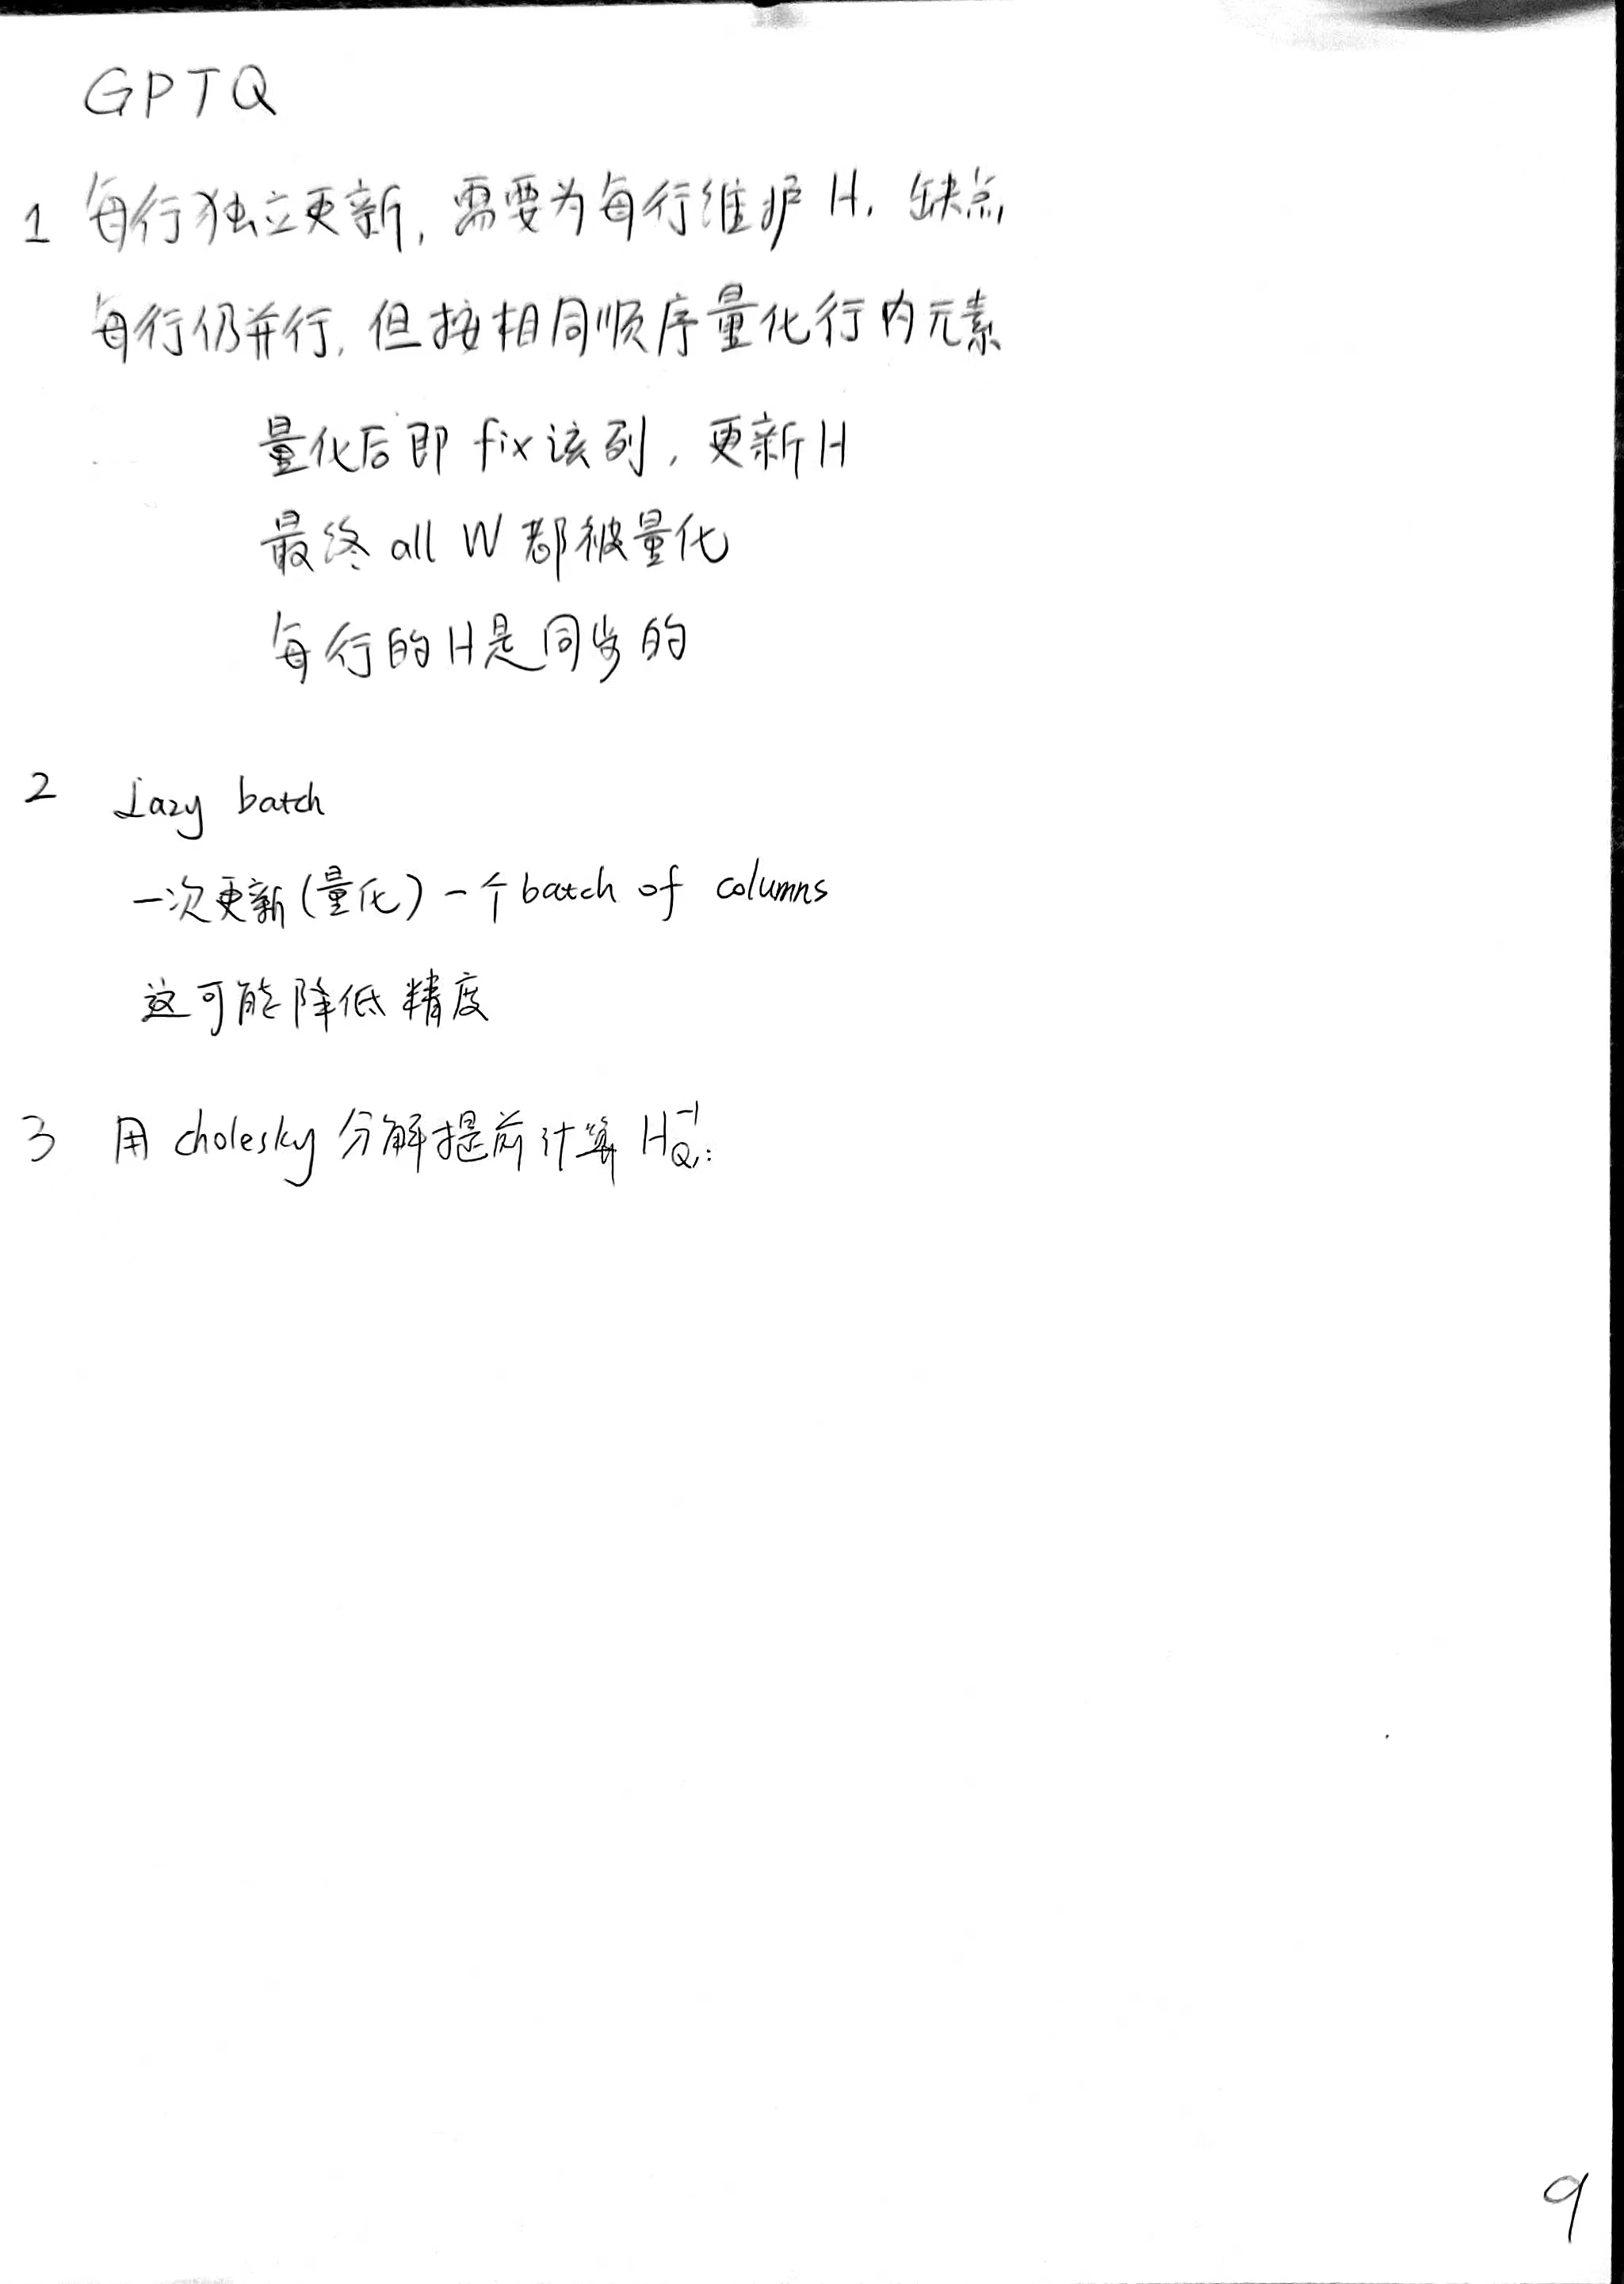 GPTQ
1 每行独立更新, 需要为每行维护 H, 缺点
每行仍并行, 但按相同顺序量化行内元素
量化后即 fix 该列, 更新 H
最终 all W 都被量化
每行的 H 是同步的
2 Lazy batch
一次更新(量化) 一个 batch of columns
这可能降低精度
3 用 cholesky 分解提前计算 H_{Q,:}^{-1}
9